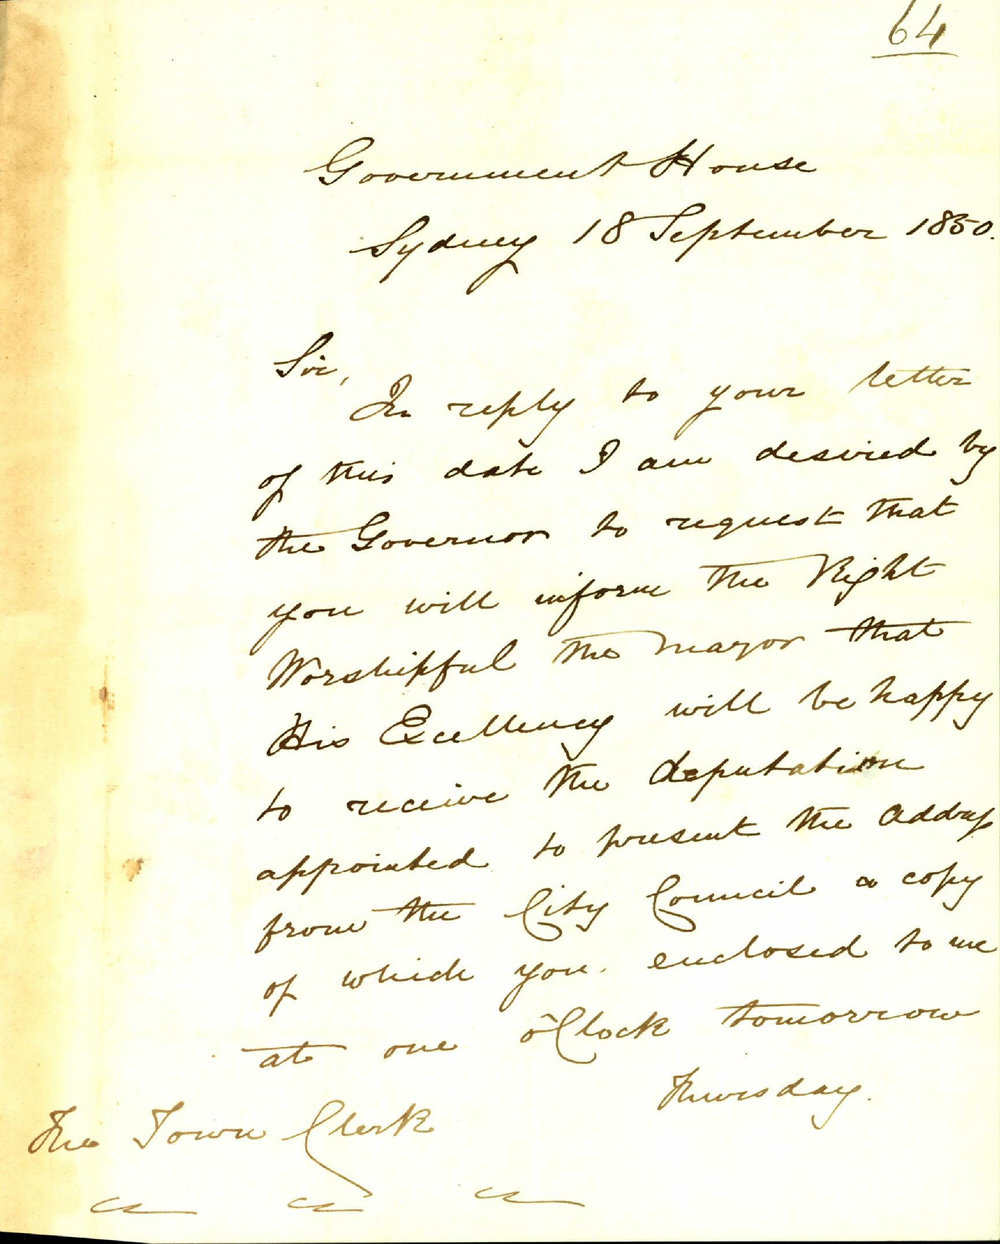 64
Government House
Sydney 18 September 1850.
Sir,
In reply to your letter
of this date I am desired by
the Governor to request that
you will inform the Right
Worshipful the Mayor that
His Excellency will be happy
to receive the deputation
appointed to present the Address
from the City Council a copy
of which you enclosed to me
at one o'Clock tomorrow
Thursday.
The Town Clerk